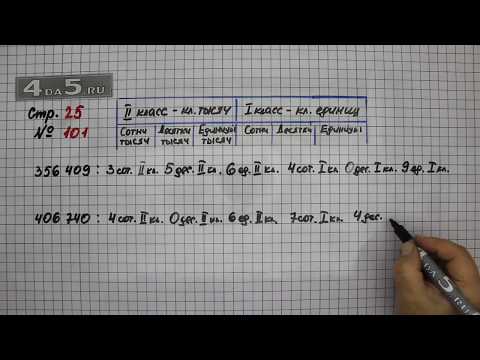 4DA5.RU
Стр. 25
№ 101
II класс - кл. тысяч I класс - кл. единиц
Сотни тысяч Десятки тысяч Единицы тысяч Сотни Десятки Единицы
356 409 : 3 сот. II кл. 5 дес. II кл. 6 ед. II кл. 4 сот. I кл. 0 дес. I кл. 9 ед. I кл.
406 740 : 4 сот. II кл. 0 дес. II кл. 6 ед. II кл. 7 сот. I кл. 4 дес.
4DA5.RU